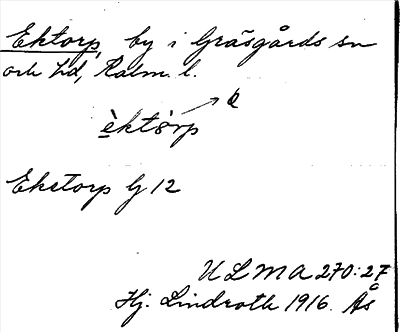 Ektorp, by i Gräsgårds sn
och hd, Kalm. l.
e
èktòrp
Ekstorp G 12
ULMA 270:27
Hj. Lindroth 1916. Ås